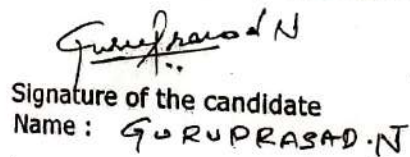 Guruprasad N
Signature of the candidate
Name : GURUPRASAD.N